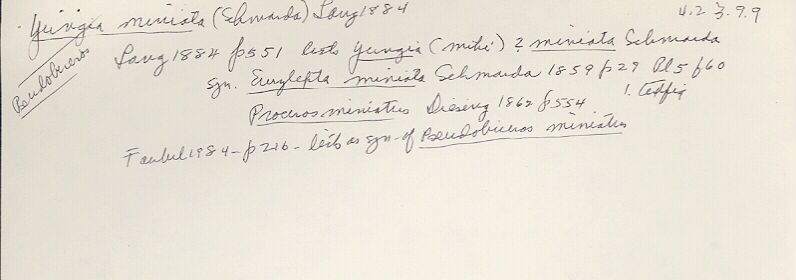 Yungia miniata (Schmarda) Lang 1884
4.2 3.9.9
Pseudobiceros
Lang 1884 p551 lists Yungia (mihi) ? miniata Schmarda
syn. Eurylepta miniata Schmarda 1859 p27 Pl5 f60
Proceros miniatus Diesing 1862 p554
1. Cotfig
Faubel 1984 - p216 - lists as syn. of Pseudobiceros miniatus